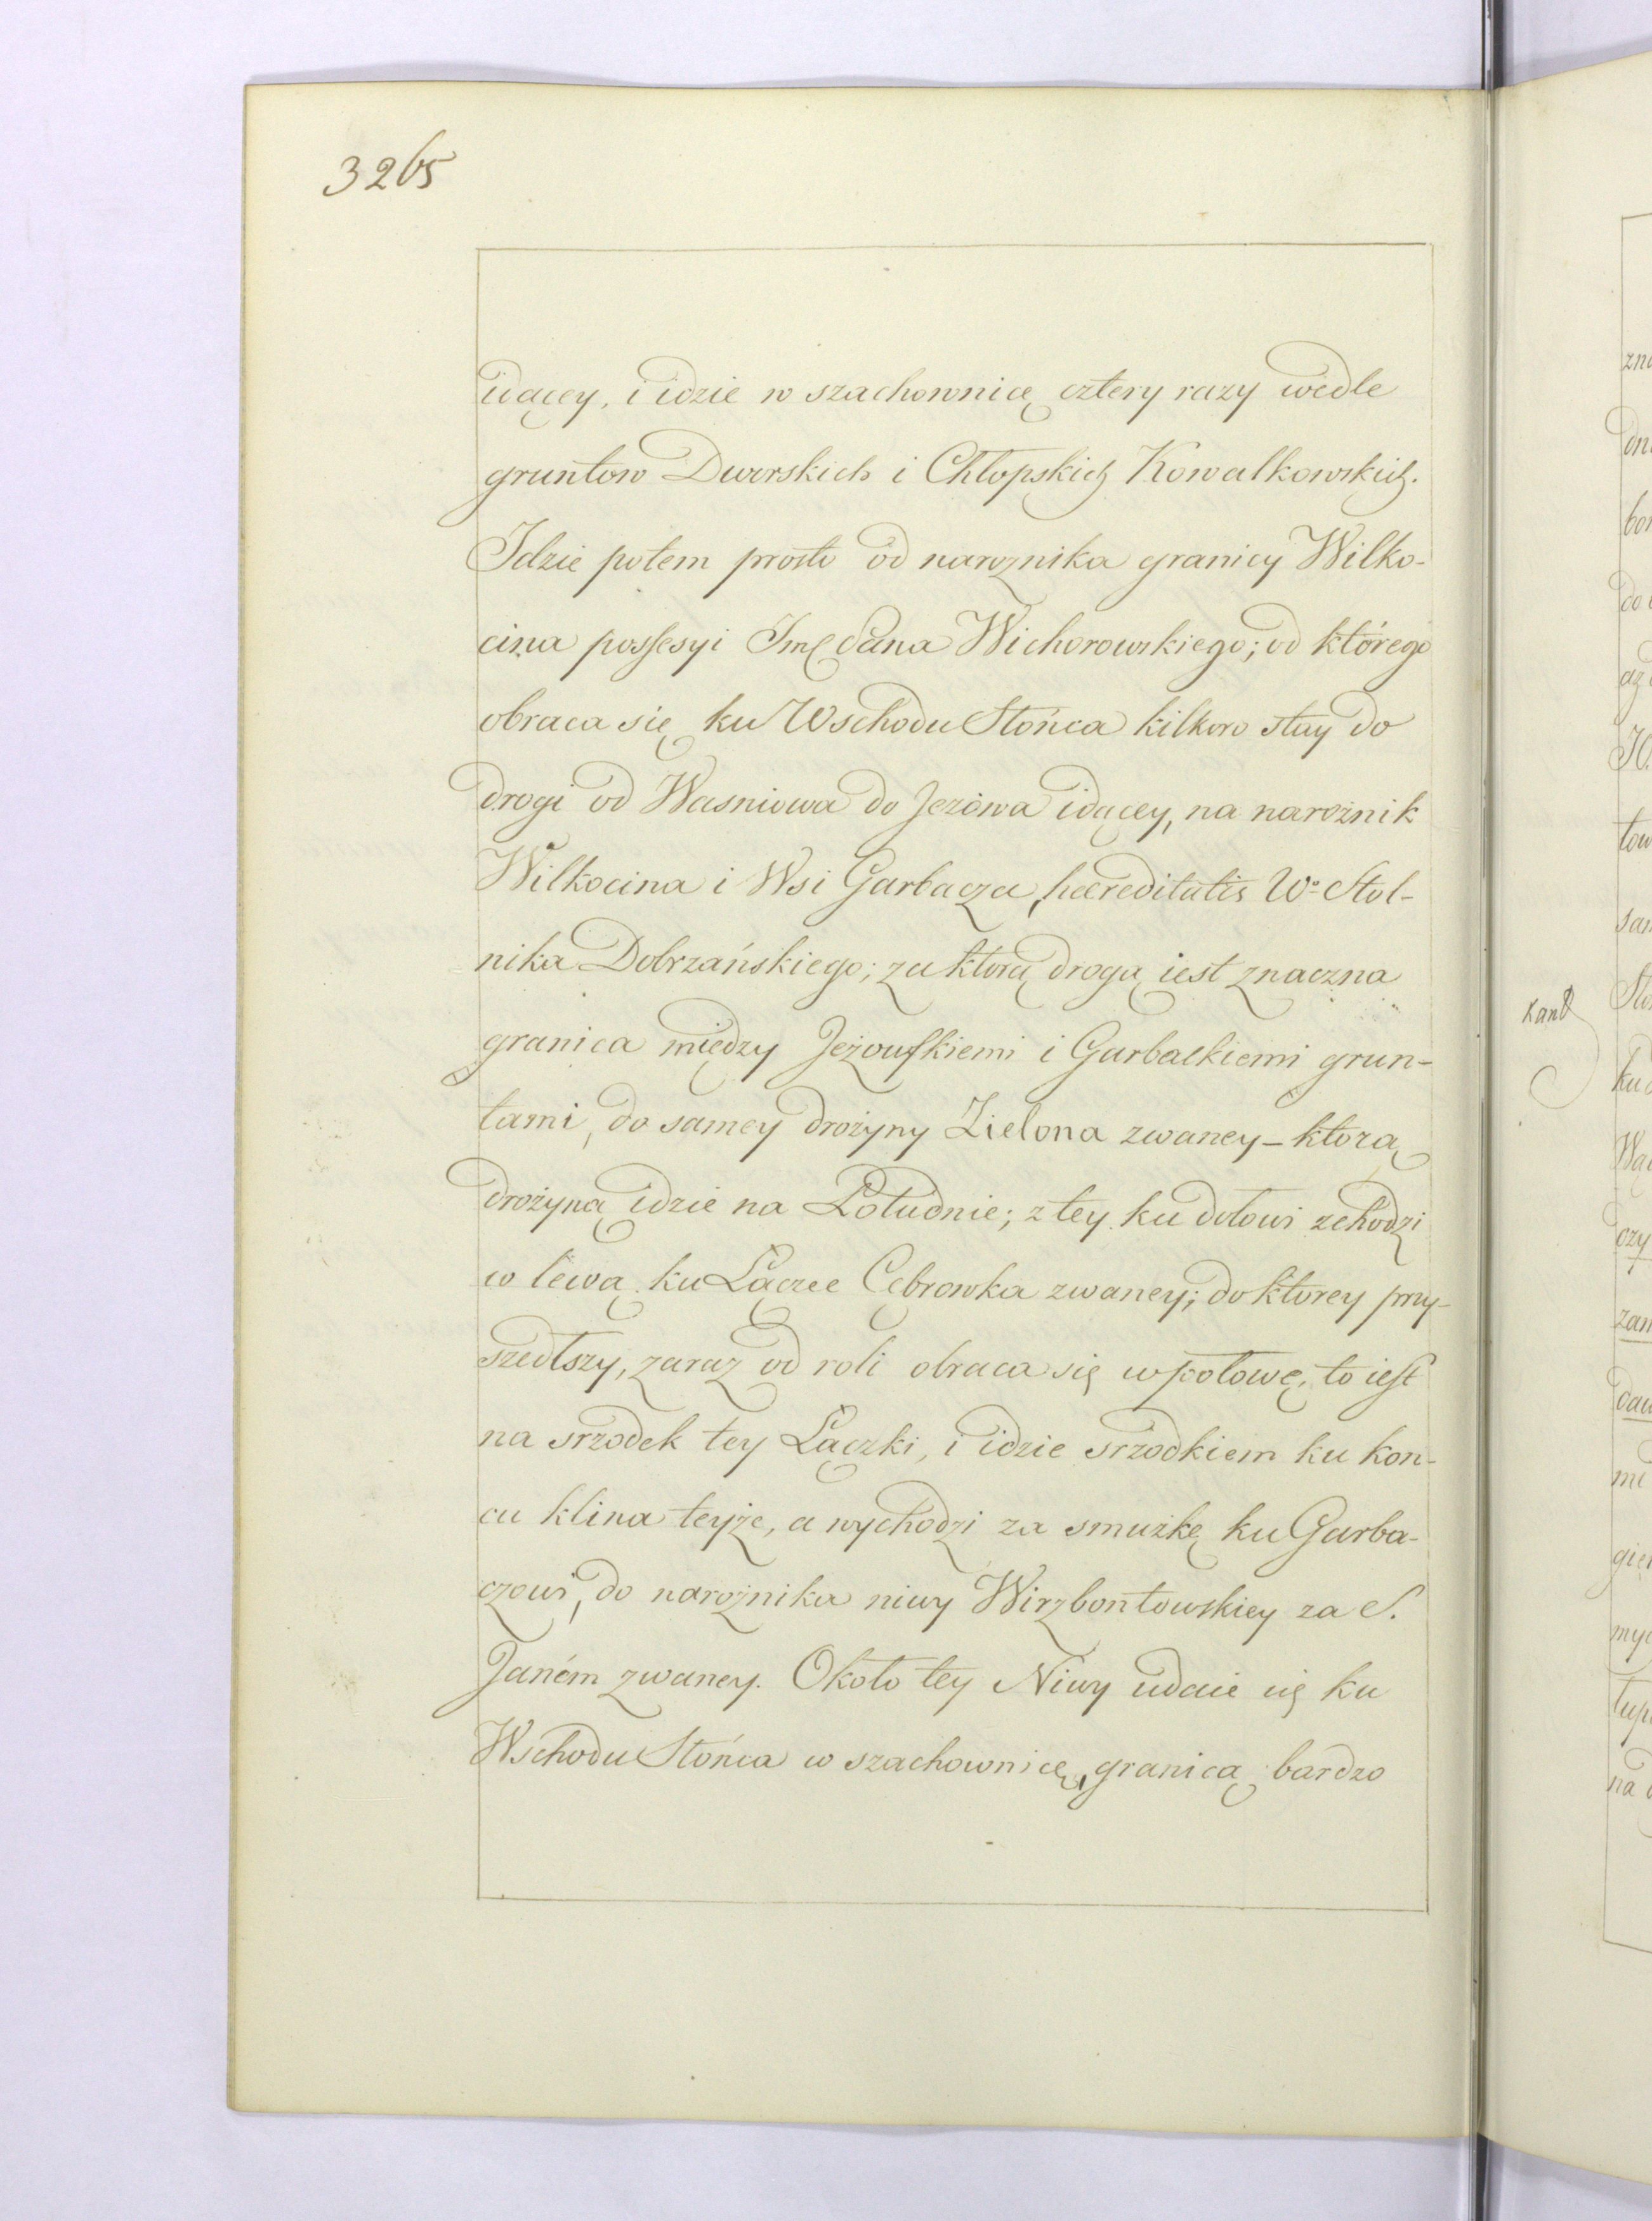 3265
idącey, i idzie w szachownicę cztery razy wedle
gruntow Dworskich i Chłopskich Kowalkowskich.
Idzie potem prosto od narożnika granicy Wilko-
cina possesyi Jmć Pana Wichorowskiego; od którego
obraca się ku Wschodu Słońca kilkoro stay do
drogi od Wasniowa do Jeżowa idącey, na narożnik
Wilkocina i Wsi Garbacza, hæreditatis Wo Stol-
nika Dobrzańskiego; za ktorą drogą iest znaczna
granica między Jeżowskiemi i Garbackiemi grun-
tami, do samey drożyny Zielona zwaney – ktorą
drożyną idzie na Południe; z tey ku dołowi zchodzi
w lewą ku Łączce Cębrowka zwaney; do ktorey przy-
szedłszy, zaraz od roli obraca się w połowę, to iest
na srzodek tey Łączki, i idzie srzodkiem ku kon-
cu klina teyże, a wychodzi za smużkę ku Garba-
czowi, do narożnika niwy Wirzbontowskiey za S.
Janém zwaney. Około tey Niwy udaie się ku
Wschodu Słońca w szachownicę, granicą bardzo